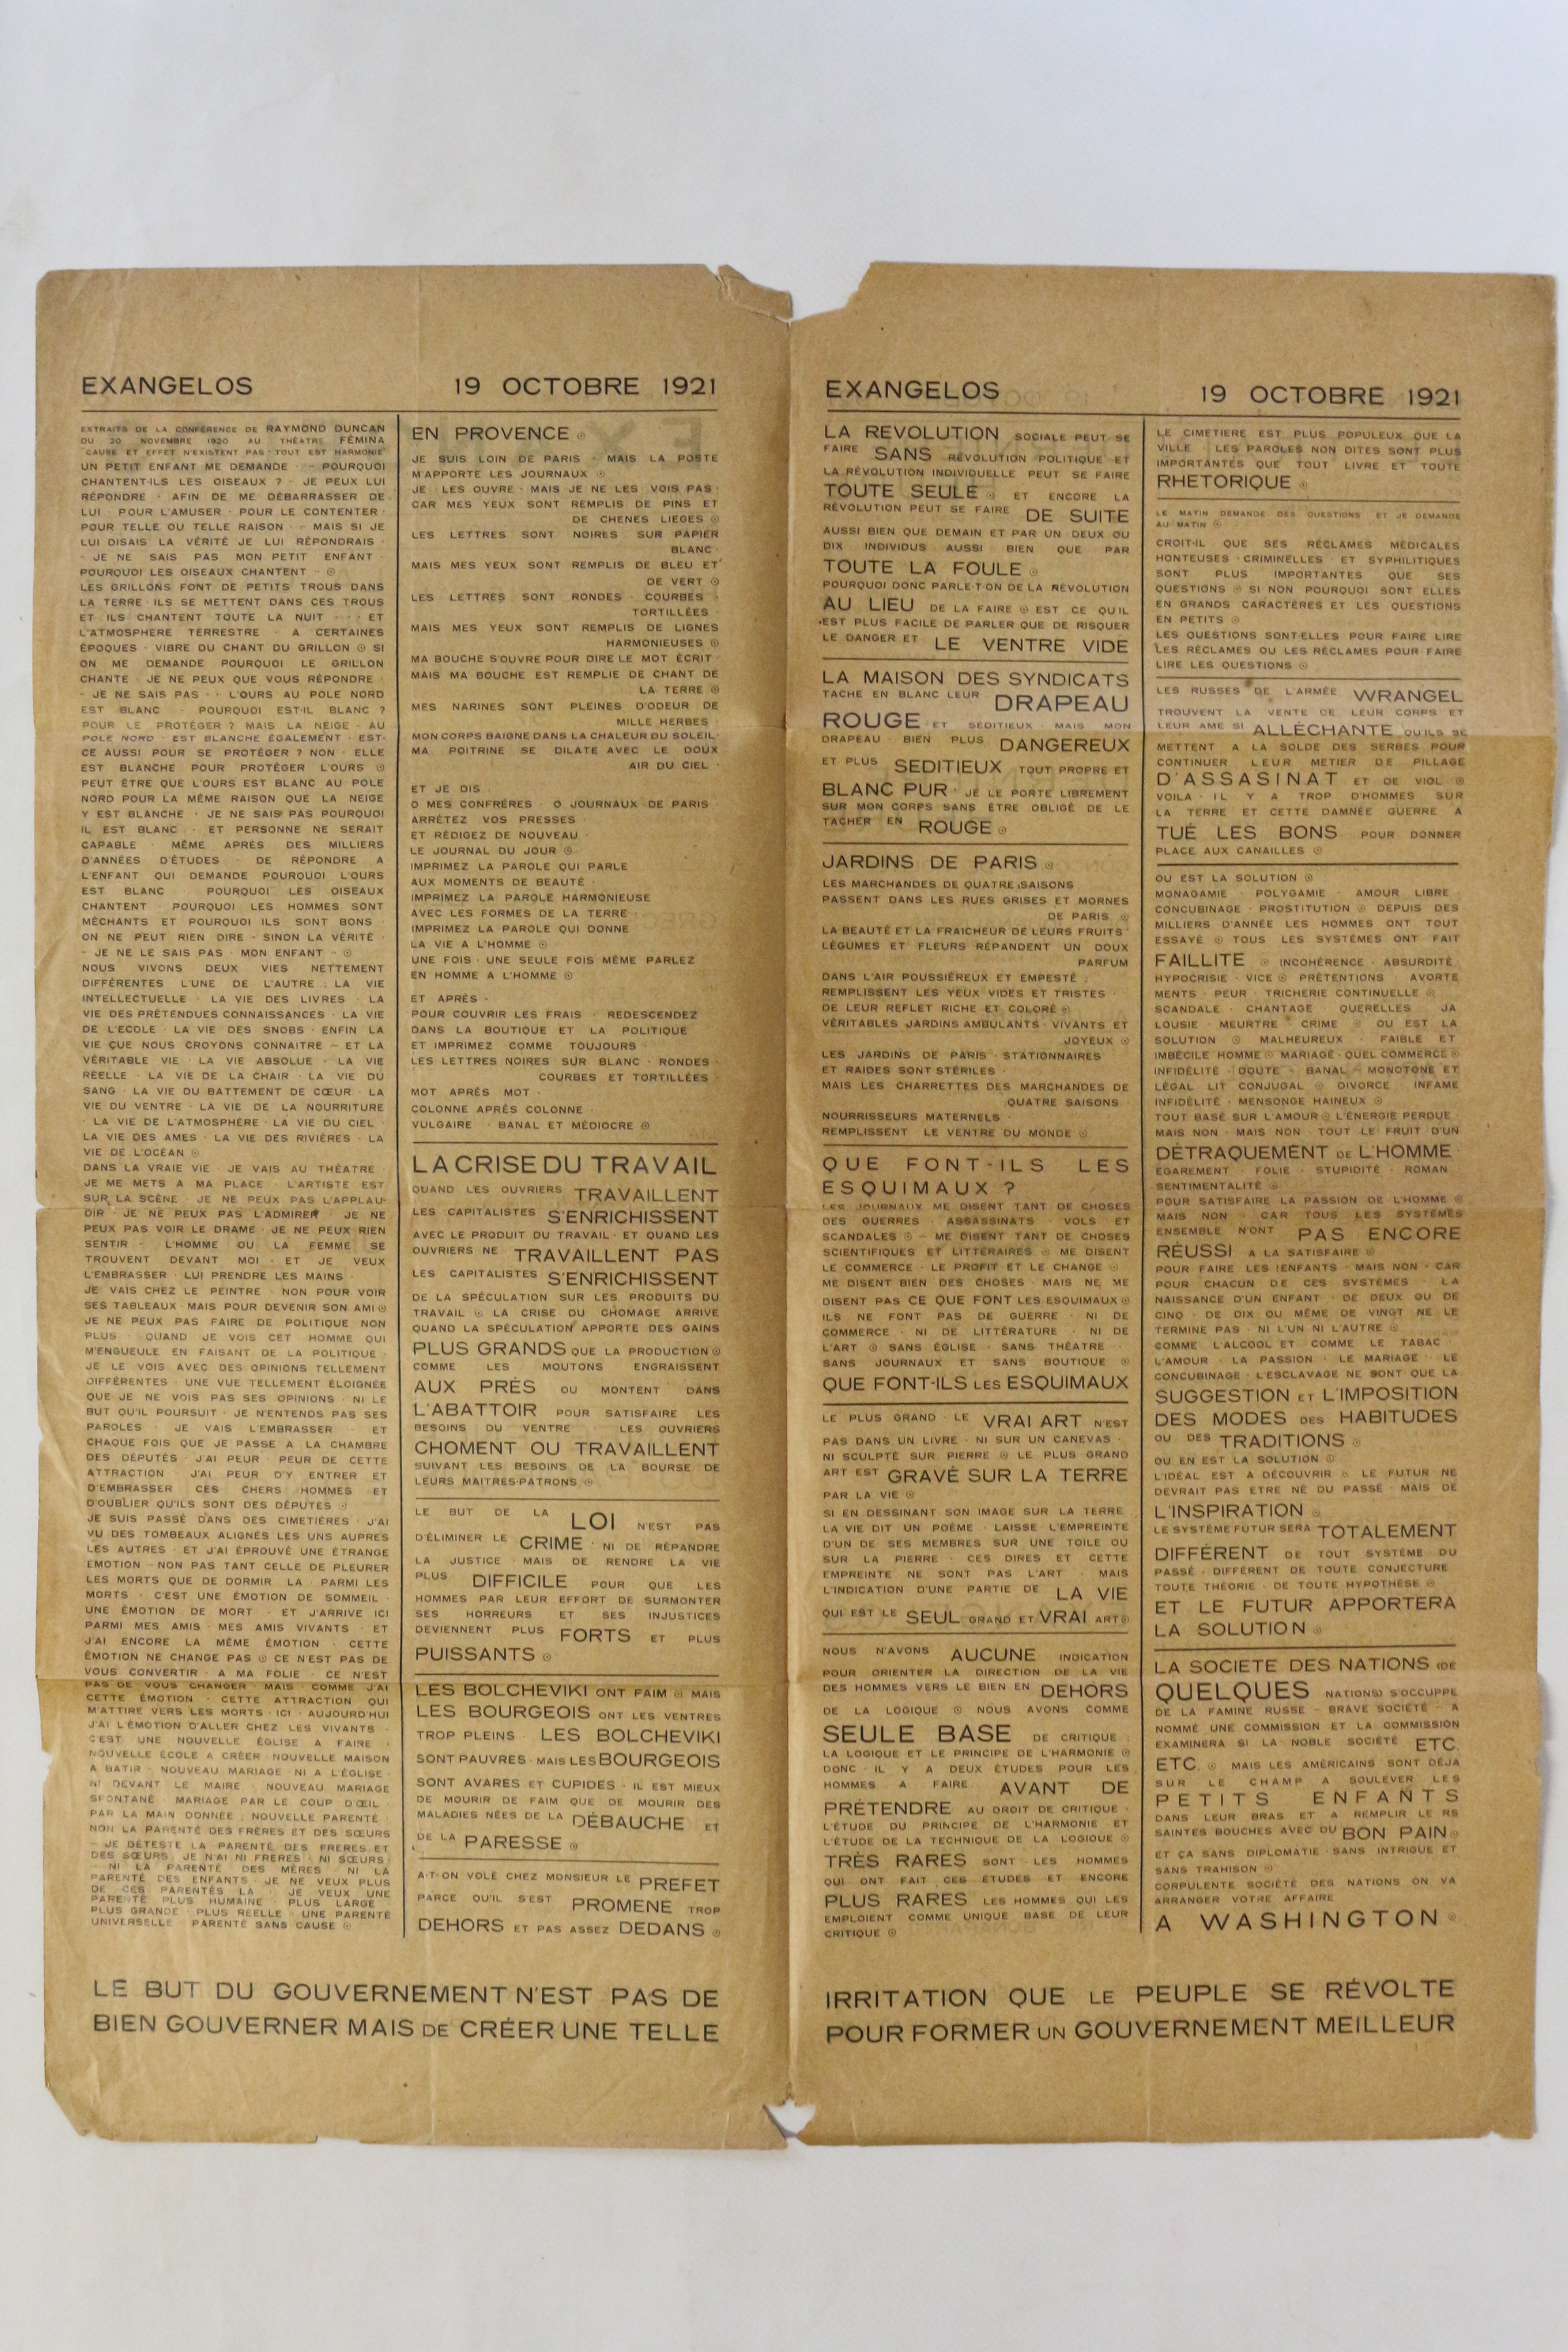 EXANGELOS 19 OCTOBRE 1921
EXTRAITS DE LA CONFÉRENCE DE RAYMOND DUNCAN
DU 20 NOVEMBRE 1920 AU THÉATRE FÉMINA
CAUSE ET EFFET N'EXISTENT PAS · TOUT EST HARMONIE
UN PETIT ENFANT ME DEMANDE · – POURQUOI
CHANTENT-ILS LES OISEAUX ? – JE PEUX LUI
RÉPONDRE · AFIN DE ME DÉBARRASSER DE
LUI · POUR L'AMUSER · POUR LE CONTENTER ·
POUR TELLE OU TELLE RAISON · – MAIS SI JE
LUI DISAIS LA VÉRITÉ JE LUI RÉPONDRAIS ·
– JE NE SAIS PAS MON PETIT ENFANT ·
POURQUOI LES OISEAUX CHANTENT – ⊙
LES GRILLONS FONT DE PETITS TROUS DANS
LA TERRE · ILS SE METTENT DANS CES TROUS
ET ILS CHANTENT TOUTE LA NUIT · · · ET
L'ATMOSPHÈRE TERRESTRE · A CERTAINES
ÉPOQUES · VIBRE DU CHANT DU GRILLON ⊙ SI
ON ME DEMANDE POURQUOI LE GRILLON
CHANTE · JE NE PEUX QUE VOUS RÉPONDRE ·
– JE NE SAIS PAS – · L'OURS AU POLE NORD
EST BLANC · POURQUOI EST-IL BLANC ?
POUR LE PROTÉGER ? MAIS LA NEIGE · AU
POLE NORD · EST BLANCHE ÉGALEMENT · EST-
CE AUSSI POUR SE PROTÉGER ? NON · ELLE
EST BLANCHE POUR PROTÉGER L'OURS ⊙
PEUT ÊTRE QUE L'OURS EST BLANC AU POLE
NORD POUR LA MÊME RAISON QUE LA NEIGE
Y EST BLANCHE · JE NE SAIS PAS POURQUOI
IL EST BLANC · ET PERSONNE NE SERAIT
CAPABLE · MÊME APRÈS DES MILLIERS
D'ANNÉES D'ÉTUDES · DE RÉPONDRE A
L'ENFANT QUI DEMANDE POURQUOI L'OURS
EST BLANC · POURQUOI LES OISEAUX
CHANTENT · POURQUOI LES HOMMES SONT
MÉCHANTS ET POURQUOI ILS SONT BONS ·
ON NE PEUT RIEN DIRE – SINON LA VÉRITÉ ·
– JE NE LE SAIS PAS · MON ENFANT – ⊙
NOUS VIVONS DEUX VIES NETTEMENT
DIFFÉRENTES L'UNE DE L'AUTRE : LA VIE
INTELLECTUELLE · LA VIE DES LIVRES · LA
VIE DES PRÉTENDUES CONNAISSANCES · LA VIE
DE L'ÉCOLE · LA VIE DES SNOBS · ENFIN LA
VIE QUE NOUS CROYONS CONNAITRE – ET LA
VÉRITABLE VIE · LA VIE ABSOLUE · LA VIE
RÉELLE · LA VIE DE LA CHAIR · LA VIE DU
SANG · LA VIE DU BATTEMENT DE CŒUR · LA
VIE DU VENTRE · LA VIE DE LA NOURRITURE
· LA VIE DE L'ATMOSPHÈRE · LA VIE DU CIEL ·
LA VIE DES AMES · LA VIE DES RIVIÈRES · LA
VIE DE L'OCÉAN ⊙
DANS LA VRAIE VIE · JE VAIS AU THÉATRE ·
JE ME METS A MA PLACE · L'ARTISTE EST
SUR LA SCÈNE · JE NE PEUX PAS L'APPLAU-
DIR · JE NE PEUX PAS L'ADMIRER · JE NE
PEUX PAS VOIR LE DRAME · JE NE PEUX RIEN
SENTIR · L'HOMME OU LA FEMME SE
TROUVENT DEVANT MOI · ET JE VEUX
L'EMBRASSER · LUI PRENDRE LES MAINS ·
JE VAIS CHEZ LE PEINTRE · NON POUR VOIR
SES TABLEAUX · MAIS POUR DEVENIR SON AMI ⊙
JE NE PEUX PAS FAIRE DE POLITIQUE NON
PLUS · QUAND JE VOIS CET HOMME QUI
M'ENGUEULE EN FAISANT DE LA POLITIQUE ·
JE LE VOIS AVEC DES OPINIONS TELLEMENT
DIFFÉRENTES · UNE VUE TELLEMENT ÉLOIGNÉE
QUE JE NE VOIS PAS SES OPINIONS · NI LE
BUT QU'IL POURSUIT · JE N'ENTENDS PAS SES
PAROLES · JE VAIS L'EMBRASSER · ET
CHAQUE FOIS QUE JE PASSE A LA CHAMBRE
DES DÉPUTÉS · J'AI PEUR · PEUR DE CETTE
ATTRACTION · J'AI PEUR D'Y ENTRER ET
D'EMBRASSER CES CHERS HOMMES ET
D'OUBLIER QU'ILS SONT DES DÉPUTÉS ⊙
JE SUIS PASSÉ DANS DES CIMETIÈRES · J'AI
VU DES TOMBEAUX ALIGNÉS LES UNS AUPRES
LES AUTRES · ET J'AI ÉPROUVÉ UNE ÉTRANGE
EMOTION – NON PAS TANT CELLE DE PLEURER
LES MORTS QUE DE DORMIR · LA · PARMI LES
MORTS · C'EST UNE ÉMOTION DE SOMMEIL ·
UNE ÉMOTION DE MORT · ET J'ARRIVE ICI
PARMI MES AMIS · MES AMIS VIVANTS · ET
J'AI ENCORE LA MÊME ÉMOTION · CETTE
ÉMOTION NE CHANGE PAS ⊙ CE N'EST PAS DE
VOUS CONVERTIR · A MA FOLIE · CE N'EST
PAS DE VOUS CHANGER · MAIS · COMME J'AI
CETTE ÉMOTION · CETTE ATTRACTION QUI
M'ATTIRE VERS LES MORTS · ICI · AUJOURD'HUI
J'AI L'ÉMOTION D'ALLER CHEZ LES VIVANTS ·
C'EST UNE NOUVELLE ÉGLISE A FAIRE ·
NOUVELLE ÉCOLE A CRÉER · NOUVELLE MAISON
A BATIR · NOUVEAU MARIAGE · NI A L'ÉGLISE ·
NI DEVANT LE MAIRE · NOUVEAU MARIAGE
SPONTANÉ · MARIAGE PAR LE COUP D'ŒIL ·
PAR LA MAIN DONNÉE ; NOUVELLE PARENTÉ ·
NON LA PARENTÉ DES FRÈRES ET DES SŒURS
– JE DÉTESTE LA PARENTÉ DES FRERES ET
DES SŒURS · JE N'AI NI FRÈRES · NI SŒURS ·
– NI LA PARENTÉ DES MÈRES · NI LA
PARENTÉ DES ENFANTS · JE NE VEUX PLUS
DE CES PARENTÉS LA · JE VEUX UNE
PARENTÉ PLUS HUMAINE · PLUS LARGE ·
PLUS GRANDE · PLUS RÉELLE · UNE PARENTÉ
UNIVERSELLE · PARENTÉ SANS CAUSE ⊙
EN PROVENCE ⊙
JE SUIS LOIN DE PARIS · MAIS LA POSTE
M'APPORTE LES JOURNAUX ⊙
JE LES OUVRE · MAIS JE NE LES VOIS PAS ·
CAR MES YEUX SONT REMPLIS DE PINS ET
DE CHENES LIEGES ⊙
LES LETTRES SONT NOIRES SUR PAPIER
BLANC ·
MAIS MES YEUX SONT REMPLIS DE BLEU ET
DE VERT ⊙
LES LETTRES SONT RONDES · COURBES ·
TORTILLÉES ·
MAIS MES YEUX SONT REMPLIS DE LIGNES
HARMONIEUSES ⊙
MA BOUCHE S'OUVRE POUR DIRE LE MOT ÉCRIT ·
MAIS MA BOUCHE EST REMPLIE DE CHANT DE
LA TERRE ⊙
MES NARINES SONT PLEINES D'ODEUR DE
MILLE HERBES ·
MON CORPS BAIGNE DANS LA CHALEUR DU SOLEIL ·
MA POITRINE SE DILATE AVEC LE DOUX
AIR DU CIEL ·
ET JE DIS
O MES CONFRÈRES · O JOURNAUX DE PARIS ·
ARRÊTEZ VOS PRESSES ·
ET RÉDIGEZ DE NOUVEAU ·
LE JOURNAL DU JOUR ⊙
IMPRIMEZ LA PAROLE QUI PARLE
AUX MOMENTS DE BEAUTÉ ·
IMPRIMEZ LA PAROLE HARMONIEUSE
AVEC LES FORMES DE LA TERRE ·
IMPRIMEZ LA PAROLE QUI DONNE
LA VIE A L'HOMME ⊙
UNE FOIS · UNE SEULE FOIS MÊME PARLEZ
EN HOMME A L'HOMME ⊙
ET APRÈS ·
POUR COUVRIR LES FRAIS · REDESCENDEZ
DANS LA BOUTIQUE ET LA POLITIQUE
ET IMPRIMEZ COMME TOUJOURS ·
LES LETTRES NOIRES SUR BLANC · RONDES ·
COURBES ET TORTILLÉES ·
MOT APRÈS MOT ·
COLONNE APRÈS COLONNE ·
VULGAIRE · BANAL ET MÉDIOCRE ⊙
LA CRISE DU TRAVAIL
QUAND LES OUVRIERS TRAVAILLENT
LES CAPITALISTES S'ENRICHISSENT
AVEC LE PRODUIT DU TRAVAIL · ET QUAND LES
OUVRIERS NE TRAVAILLENT PAS
LES CAPITALISTES S'ENRICHISSENT
DE LA SPÉCULATION SUR LES PRODUITS DU
TRAVAIL ⊙ LA CRISE DU CHOMAGE ARRIVE
QUAND LA SPÉCULATION APPORTE DES GAINS
PLUS GRANDS QUE LA PRODUCTION ⊙
COMME LES MOUTONS ENGRAISSENT
AUX PRÉS OU MONTENT DANS
L'ABATTOIR POUR SATISFAIRE LES
BESOINS DU VENTRE · LES OUVRIERS
CHOMENT OU TRAVAILLENT
SUIVANT LES BESOINS DE LA BOURSE DE
LEURS MAITRES-PATRONS ⊙
LE BUT DE LA LOI N'EST PAS
D'ÉLIMINER LE CRIME · NI DE RÉPANDRE
LA JUSTICE · MAIS DE RENDRE LA VIE
PLUS DIFFICILE POUR QUE LES
HOMMES PAR LEUR EFFORT DE SURMONTER
SES HORREURS ET SES INJUSTICES
DEVIENNENT PLUS FORTS ET PLUS
PUISSANTS ⊙
LES BOLCHEVIKI ONT FAIM ⊙ MAIS
LES BOURGEOIS ONT LES VENTRES
TROP PLEINS · LES BOLCHEVIKI
SONT PAUVRES · MAIS LES BOURGEOIS
SONT AVARES ET CUPIDES · IL EST MIEUX
DE MOURIR DE FAIM QUE DE MOURIR DES
MALADIES NÉES DE LA DÉBAUCHE ET
DE LA PARESSE ⊙
A-T-ON VOLÉ CHEZ MONSIEUR LE PREFET
PARCE QU'IL S'EST PROMENÉ TROP
DEHORS ET PAS ASSEZ DEDANS ⊙
LE BUT DU GOUVERNEMENT N'EST PAS DE
BIEN GOUVERNER MAIS DE CRÉER UNE TELLE
EXANGELOS 19 OCTOBRE 1921
LA REVOLUTION SOCIALE PEUT SE
FAIRE SANS RÉVOLUTION POLITIQUE ET
LA RÉVOLUTION INDIVIDUELLE PEUT SE FAIRE
TOUTE SEULE ⊙ ET ENCORE LA
RÉVOLUTION PEUT SE FAIRE DE SUITE
AUSSI BIEN QUE DEMAIN ET PAR UN · DEUX OU
DIX INDIVIDUS AUSSI BIEN QUE PAR
TOUTE LA FOULE ⊙
POURQUOI DONC PARLE-T-ON DE LA RÉVOLUTION
AU LIEU DE LA FAIRE ⊙ EST CE QU'IL
EST PLUS FACILE DE PARLER QUE DE RISQUER
LE DANGER ET LE VENTRE VIDE
LA MAISON DES SYNDICATS
TACHE EN BLANC LEUR DRAPEAU
ROUGE ET SÉDITIEUX · MAIS MON
DRAPEAU · BIEN PLUS DANGEREUX
ET PLUS SEDITIEUX TOUT PROPRE ET
BLANC PUR · JE LE PORTE LIBREMENT
SUR MON CORPS SANS ÊTRE OBLIGÉ DE LE
TACHER EN ROUGE ⊙
JARDINS DE PARIS ⊙
LES MARCHANDES DE QUATRE SAISONS
PASSENT DANS LES RUES GRISES ET MORNES
DE PARIS ⊙
LA BEAUTÉ ET LA FRAICHEUR DE LEURS FRUITS
LÉGUMES ET FLEURS RÉPANDENT UN DOUX
PARFUM
DANS L'AIR POUSSIÉREUX ET EMPESTÉ ·
REMPLISSENT LES YEUX VIDES ET TRISTES ·
DE LEUR REFLET RICHE ET COLORÉ ⊙
VÉRITABLES JARDINS AMBULANTS · VIVANTS ET
JOYEUX ⊙
LES JARDINS DE PARIS · STATIONNAIRES
ET RAIDES SONT STÉRILES ·
MAIS LES CHARRETTES DES MARCHANDES DE
QUATRE SAISONS ·
NOURRISSEURS MATERNELS ·
REMPLISSENT LE VENTRE DU MONDE ⊙
QUE FONT-ILS LES
ESQUIMAUX ?
LES JOURNAUX ME DISENT TANT DE CHOSES
DES GUERRES · ASSASSINATS · VOLS ET
SCANDALES ⊙ – ME DISENT TANT DE CHOSES
SCIENTIFIQUES ET LITTÉRAIRES ⊙ ME DISENT
LE COMMERCE · LE PROFIT ET LE CHANGE ⊙
ME DISENT BIEN DES CHOSES · MAIS NE ME
DISENT PAS CE QUE FONT LES ESQUIMAUX ⊙
ILS NE FONT PAS DE GUERRE · NI DE
COMMERCE · NI DE LITTÉRATURE · NI DE
L'ART ⊙ SANS ÉGLISE · SANS THÉATRE ·
SANS JOURNAUX ET SANS BOUTIQUE ⊙
QUE FONT-ILS LES ESQUIMAUX
LE PLUS GRAND · LE VRAI ART N'EST
PAS DANS UN LIVRE · NI SUR UN CANEVAS ·
NI SCULPTÉ SUR PIERRE ⊙ LE PLUS GRAND
ART EST GRAVÉ SUR LA TERRE
PAR LA VIE ⊙
SI EN DESSINANT SON IMAGE SUR LA TERRE
LA VIE DIT UN POÈME · LAISSE L'EMPREINTE
D'UN DE SES MEMBRES SUR UNE TOILE OU
SUR LA PIERRE · CES DIRES ET CETTE
EMPREINTE NE SONT PAS L'ART · MAIS
L'INDICATION D'UNE PARTIE DE LA VIE
QUI EST LE SEUL GRAND ET VRAI ART ⊙
NOUS N'AVONS AUCUNE INDICATION
POUR ORIENTER LA DIRECTION DE LA VIE
DES HOMMES VERS LE BIEN EN DEHORS
DE LA LOGIQUE ⊙ NOUS AVONS COMME
SEULE BASE DE CRITIQUE ·
LA LOGIQUE ET LE PRINCIPE DE L'HARMONIE ⊙
DONC · IL Y A DEUX ÉTUDES POUR LES
HOMMES A FAIRE AVANT DE
PRÉTENDRE AU DROIT DE CRITIQUE ·
L'ÉTUDE DU PRINCIPE DE L'HARMONIE ET
L'ÉTUDE DE LA TECHNIQUE DE LA LOGIQUE ⊙
TRÈS RARES SONT LES HOMMES
QUI ONT FAIT CES ÉTUDES ET ENCORE
PLUS RARES LES HOMMES QUI LES
EMPLOIENT COMME UNIQUE BASE DE LEUR
CRITIQUE ⊙
LE CIMETIERE EST PLUS POPULEUX QUE LA
VILLE · LES PAROLES NON DITES SONT PLUS
IMPORTANTES QUE TOUT LIVRE ET TOUTE
RHETORIQUE ⊙
LE MATIN DEMANDE DES QUESTIONS ET JE DEMANDE
AU MATIN ⊙
CROIT-IL QUE SES RÉCLAMES MÉDICALES
HONTEUSES · CRIMINELLES · ET SYPHILITIQUES
SONT PLUS IMPORTANTES QUE SES
QUESTIONS ⊙ SI NON POURQUOI SONT ELLES
EN GRANDS CARACTÈRES ET LES QUESTIONS
EN PETITS ⊙
LES QUESTIONS SONT-ELLES POUR FAIRE LIRE
LES RÉCLAMES OU LES RÉCLAMES POUR FAIRE
LIRE LES QUESTIONS ⊙
LES RUSSES DE L'ARMÉE WRANGEL
TROUVENT LA VENTE DE LEUR CORPS ET
LEUR AME SI ALLÉCHANTE QU'ILS SE
METTENT A LA SOLDE DES SERBES POUR
CONTINUER LEUR METIER DE PILLAGE
D'ASSASINAT ET DE VIOL ⊙
VOILA · IL Y A TROP D'HOMMES SUR
LA TERRE ET CETTE DAMNÉE GUERRE A
TUÉ LES BONS POUR DONNER
PLACE AUX CANAILLES ⊙
OU EST LA SOLUTION ⊙
MONAGAMIE · POLYGAMIE · AMOUR LIBRE ·
CONCUBINAGE · PROSTITUTION ⊙ DEPUIS DES
MILLIERS D'ANNÉE LES HOMMES ONT TOUT
ESSAYÉ ⊙ TOUS LES SYSTÈMES ONT FAIT
FAILLITE ⊙ INCOHÉRENCE · ABSURDITÉ ·
HYPOCRISIE · VICE ⊙ PRÉTENTIONS · AVORTE
MENTS · PEUR · TRICHERIE CONTINUELLE ⊙
SCANDALE · CHANTAGE · QUERELLES · JA
LOUSIE · MEURTRE · CRIME ⊙ OU EST LA
SOLUTION ⊙ MALHEUREUX · FAIBLE ET
IMBÉCILE HOMME ⊙ MARIAGE · QUEL COMMERCE ⊙
INFIDÉLITÉ · DOUTE – BANAL – MONOTONE ET
LÉGAL LIT CONJUGAL ⊙ DIVORCE · INFAME
INFIDÉLITÉ · MENSONGE HAINEUX ⊙
TOUT BASÉ SUR L'AMOUR ⊙ L'ÉNERGIE PERDUE ·
MAIS NON · MAIS NON · TOUT LE FRUIT D'UN
DÉTRAQUEMENT DE L'HOMME ·
EGAREMENT · FOLIE · STUPIDITÉ · ROMAN ·
SENTIMENTALITÉ ⊙
POUR SATISFAIRE LA PASSION DE L'HOMME ⊙
MAIS NON · CAR TOUS LES SYSTÈMES
ENSEMBLE N'ONT PAS ENCORE
RÉUSSI A LA SATISFAIRE ⊙
POUR FAIRE LES ENFANTS · MAIS NON · CAR
POUR CHACUN DE CES SYSTÈMES · LA
NAISSANCE D'UN ENFANT · DE DEUX OU DE
CINQ · DE DIX OU MÊME DE VINGT NE LE
TERMINE PAS · NI L'UN NI L'AUTRE ⊙
COMME L'ALCOOL ET COMME LE TABAC ·
L'AMOUR · LA PASSION · LE MARIAGE · LE
CONCUBINAGE · L'ESCLAVAGE NE SONT QUE LA
SUGGESTION ET L'IMPOSITION
DES MODES DES HABITUDES
OU DES TRADITIONS ⊙
OU EN EST LA SOLUTION ⊙
L'IDÉAL EST A DÉCOUVRIR ⊙ LE FUTUR NE
DEVRAIT PAS ETRE NÉ DU PASSÉ · MAIS DE
L'INSPIRATION ⊙
LE SYSTÈME FUTUR SERA TOTALEMENT
DIFFÉRENT DE TOUT SYSTÈME DU
PASSÉ · DIFFÉRENT DE TOUTE CONJECTURE
TOUTE THÉORIE · DE TOUTE HYPOTHÈSE ⊙
ET LE FUTUR APPORTERA
LA SOLUTION ⊙
LA SOCIETE DES NATIONS (DE
QUELQUES NATIONS) S'OCCUPPE
DE LA FAMINE RUSSE – BRAVE SOCIÉTÉ – A
NOMMÉ UNE COMMISSION ET LA COMMISSION
EXAMINERA SI LA NOBLE SOCIÉTÉ ETC.
ETC. ⊙ MAIS LES AMÉRICAINS SONT DÉJA
SUR LE CHAMP A SOULEVER LES
PETITS ENFANTS
DANS LEUR BRAS ET A REMPLIR LE RS
SAINTES BOUCHES AVEC DU BON PAIN ⊙
ET ÇA SANS DIPLOMATIE · SANS INTRIGUE ET
SANS TRAHISON ⊙
CORPULENTE SOCIÉTÉ DES NATIONS ON VA
ARRANGER VOTRE AFFAIRE
A WASHINGTON ⊙
IRRITATION QUE LE PEUPLE SE RÉVOLTE
POUR FORMER UN GOUVERNEMENT MEILLEUR